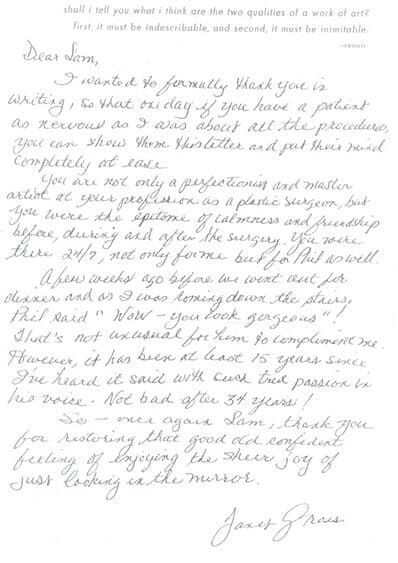 shall i tell you what i think are the two qualities of a work of art?
first, it must be indescribable, and second, it must be inimitable.
–renoir
Dear Sam,
I wanted to formally thank you in
writing, so that one day if you have a patient
as nervous as I was about all the procedures,
you can show them this letter and put their mind
completely at ease.
You are not only a perfectionist and master
artist at your profession as a plastic surgeon, but
you were the epitome of calmness and friendship
before, during and after the surgery. You were
there 24/7, not only for me but for Phil as well.
A few weeks ago before we went out for
dinner and as I was coming down the stairs,
Phil said "Wow – you look gorgeous"!
That's not unusual for him to compliment me.
However, it has been at least 15 years since
I've heard it said with such true passion in
his voice. Not bad after 34 years!
So – once again Sam, thank you
for restoring that good old confident
feeling of enjoying the sheer joy of
just looking in the mirror.
Janet